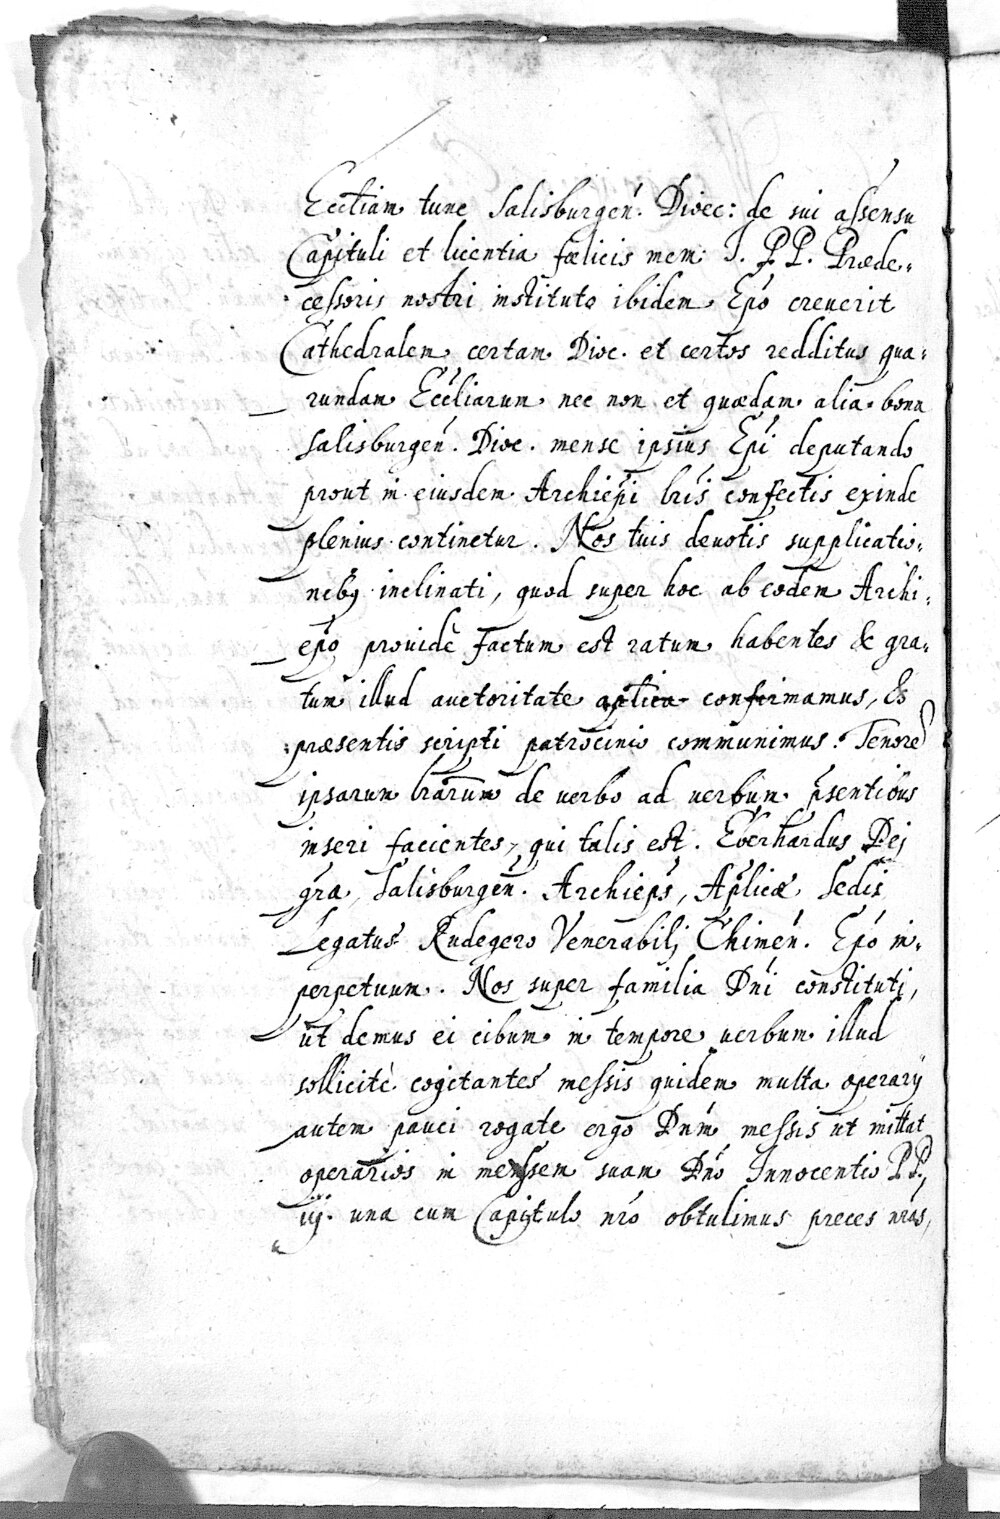 Eccliam tunc Salisburgen. Dioec: de sui assensu
Capituli et licentia fœlicis mem: I. PP. Præde=
cessoris nostri instituto ibidem Epo creuerit
Cathedralem certam Dioc. et certos redditus qua=
rundam Eccliarum nec non et quædam alia bona
Salisburgen. Dioc. mense ipsius Epi deputando
prout in eiusdem Archiepi lris confectis exinde
plenius continetur. Nos tuis deuotis supplicatio=
nibq inclinati, quod super hoc ab eodem Archi=
epo prouidè factum est ratum habentes & gra=
tum illud auctoritate aplica confirmamus, &
præsentis scripti patrocinio communimus. Tenore
ipsarum lrarum de uerbo ad uerbum psentibus
inseri facientes, qui talis est. Eberhardus Dei
gra, Salisburgen. Archieps, Aplicæ Sedis
Legatus Rudegero Venerabili Chimen. Epo in
perpetuum. Nos super familia Dni constituti,
ut demus ei cibum in tempore uerbum illud
sollicitè cogitantes messis quidem multa operarij
autem pauci rogate ergo Dnm messis ut mittat
operarios in messem suam Dno Innocentio PP.
iij. una cum Capitulo nro obtulimus preces nras,